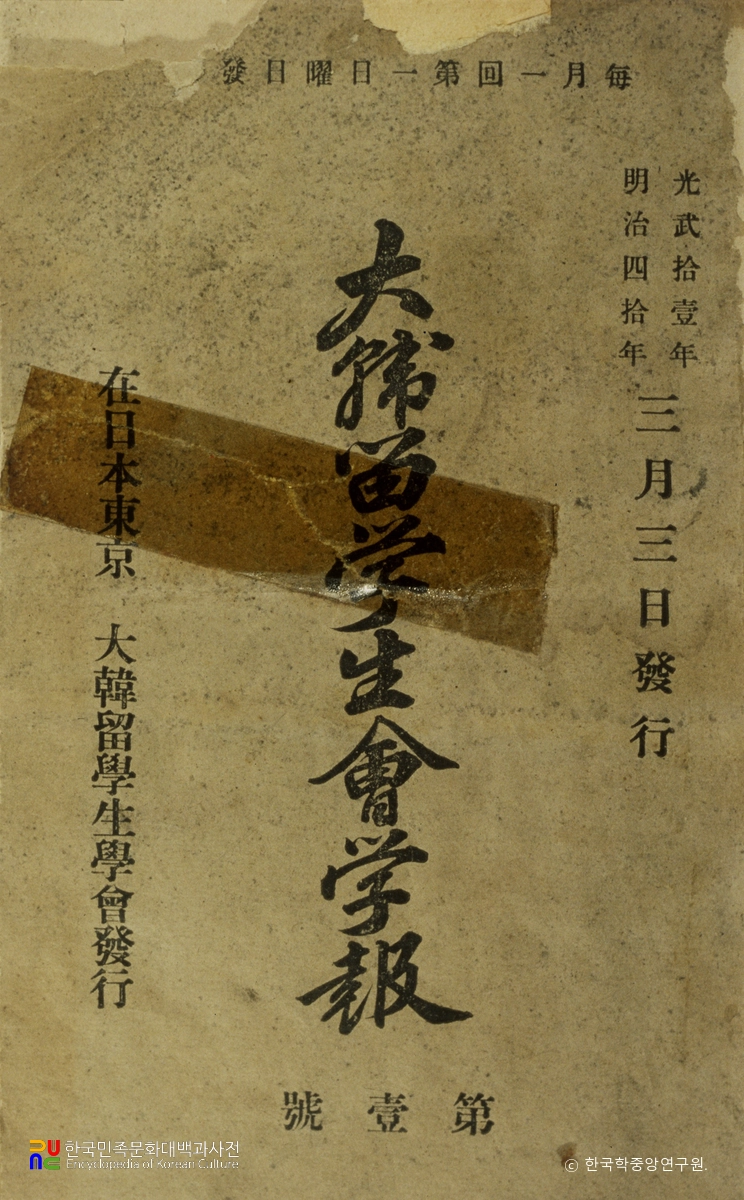 每月一回第一日曜日發
光武拾壹年
明治四拾年
三月三日發行
大韓留学生會学報
在日本東京 大韓留學生學會發行
第壹號
한국민족문화대백과사전
Encyclopedia of Korean Culture
© 한국학중앙연구원.